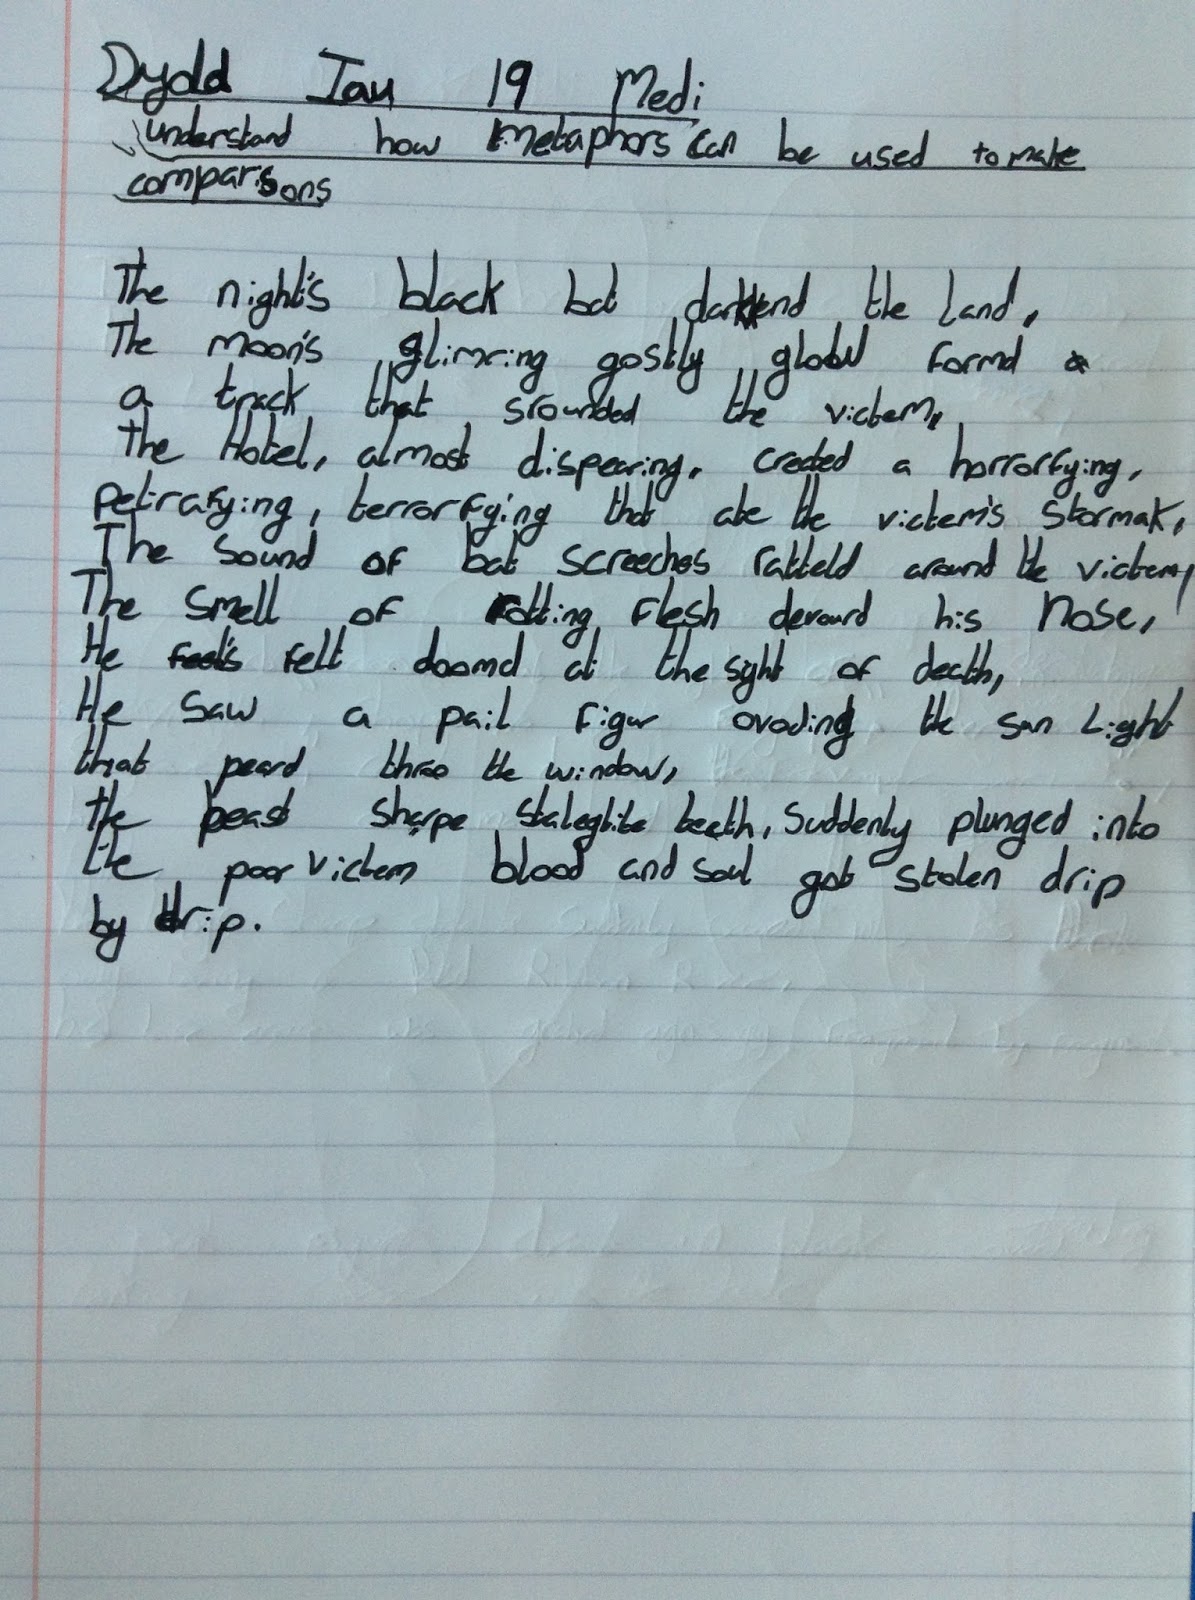 Dydd Iau 19 Medi
understand how metaphors can be used to make
comparisons
The night's black bat darkend the land,
The moon's glimring gostly globl formd a
a track that srounded the victem,
The Hotel, almost dispearing, created a horrorfying,
petrafying, terrorfying that ate the victem's Stormak,
The sound of bat screeches ratteld around the victem,
The smell of rotting flesh devourd his Nose,
He feel's felt doomd at the sight of death,
He saw a pail figur avoding the sun Light
that peard throo the window,
the beast sharpe staleglite teeth, Suddenly plunged into
the poor victem blood and soul got stolen drip
by drip.